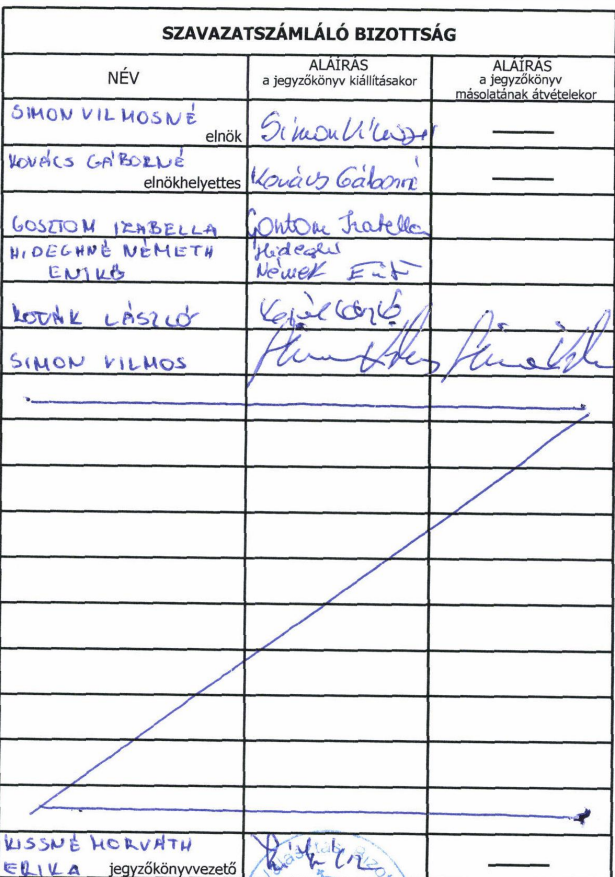 SZAVAZATSZÁMLÁLÓ BIZOTTSÁG
NÉV
ALÁÍRÁS
a jegyzőkönyv kiállításakor
ALÁÍRÁS
a jegyzőkönyv
másolatának átvételekor
SIMON VILMOSNÉ
elnök
Simon Vilmosné
KOVÁCS GÁBORNÉ
elnökhelyettes
Kovács Gáborné
GOSZTOM IZABELLA
HIDEGHNÉ NÉMETH
ENIKŐ
Németh
LÁSZLÓ
SIMON VILMOS
KISSNÉ HORVÁTH
ERIKA jegyzőkönyvvezető